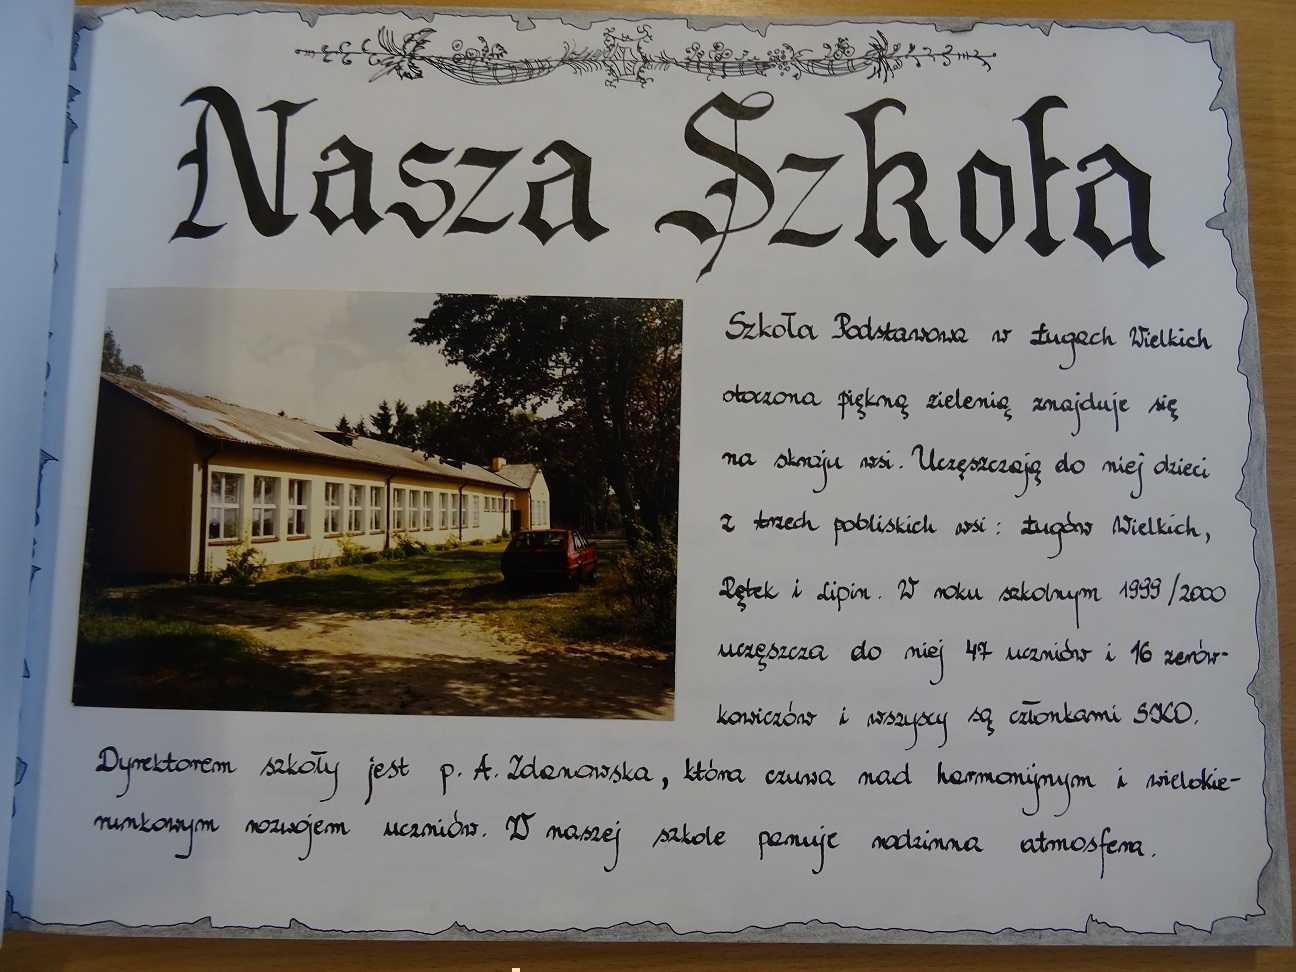 Nasza Szkoła
Szkoła Podstawowa w Ługach Wielkich
otoczona piękną zielenią znajduje się
na skraju wsi. Uczęszczają do niej dzieci
z trzech pobliskich wsi: Ługów Wielkich,
Rętek i Lipin. W roku szkolnym 1999/2000
uczęszcza do niej 47 uczniów i 16 zerów-
kowiczów i wszyscy są członkami SKO.
Dyrektorem szkoły jest p. A. Zdanowska, która czuwa nad harmonijnym i wielokie-
runkowym rozwojem uczniów. W naszej szkole panuje rodzinna atmosfera.